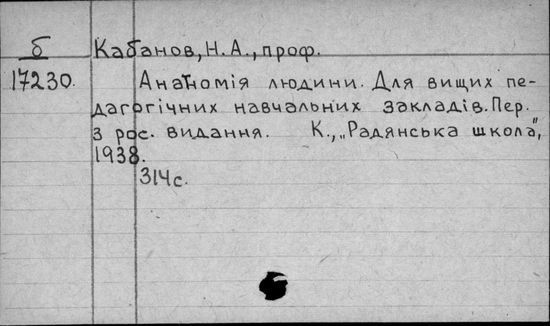 б Кабанов, Н. А., проф.
17230. Анатомія людини. Для вищих пе-
дагогічних навчальних закладів. Пер.
з рос. видання. К., „Радянська школа”,
1938.
314с.